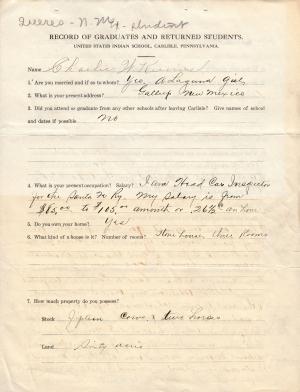 RECORD OF GRADUATES AND RETURNED STUDENTS.
UNITED STATES INDIAN SCHOOL, CARLISLE, PENNSYLVANIA.
Name Charlie W.
1. Are you married and if so to whom? Yes, a Laguna Girl
2. What is your present address? Gallup New Mexico
3. Did you attend or graduate from any other schools after leaving Carlisle? Give names of school
and dates if possible No
4. What is your present occupation? Salary? I am Head Car Inspector
for the Santa Fe Ry. My Salary is from
$85.00 to $105.00 a month or 26½¢ an hour
5. Do you own your home? Yes
6. What kind of a house is it? Number of rooms? Stone house, three Rooms
7. How much property do you possess?
Stock Cows, & two horses
Land Sixty acres